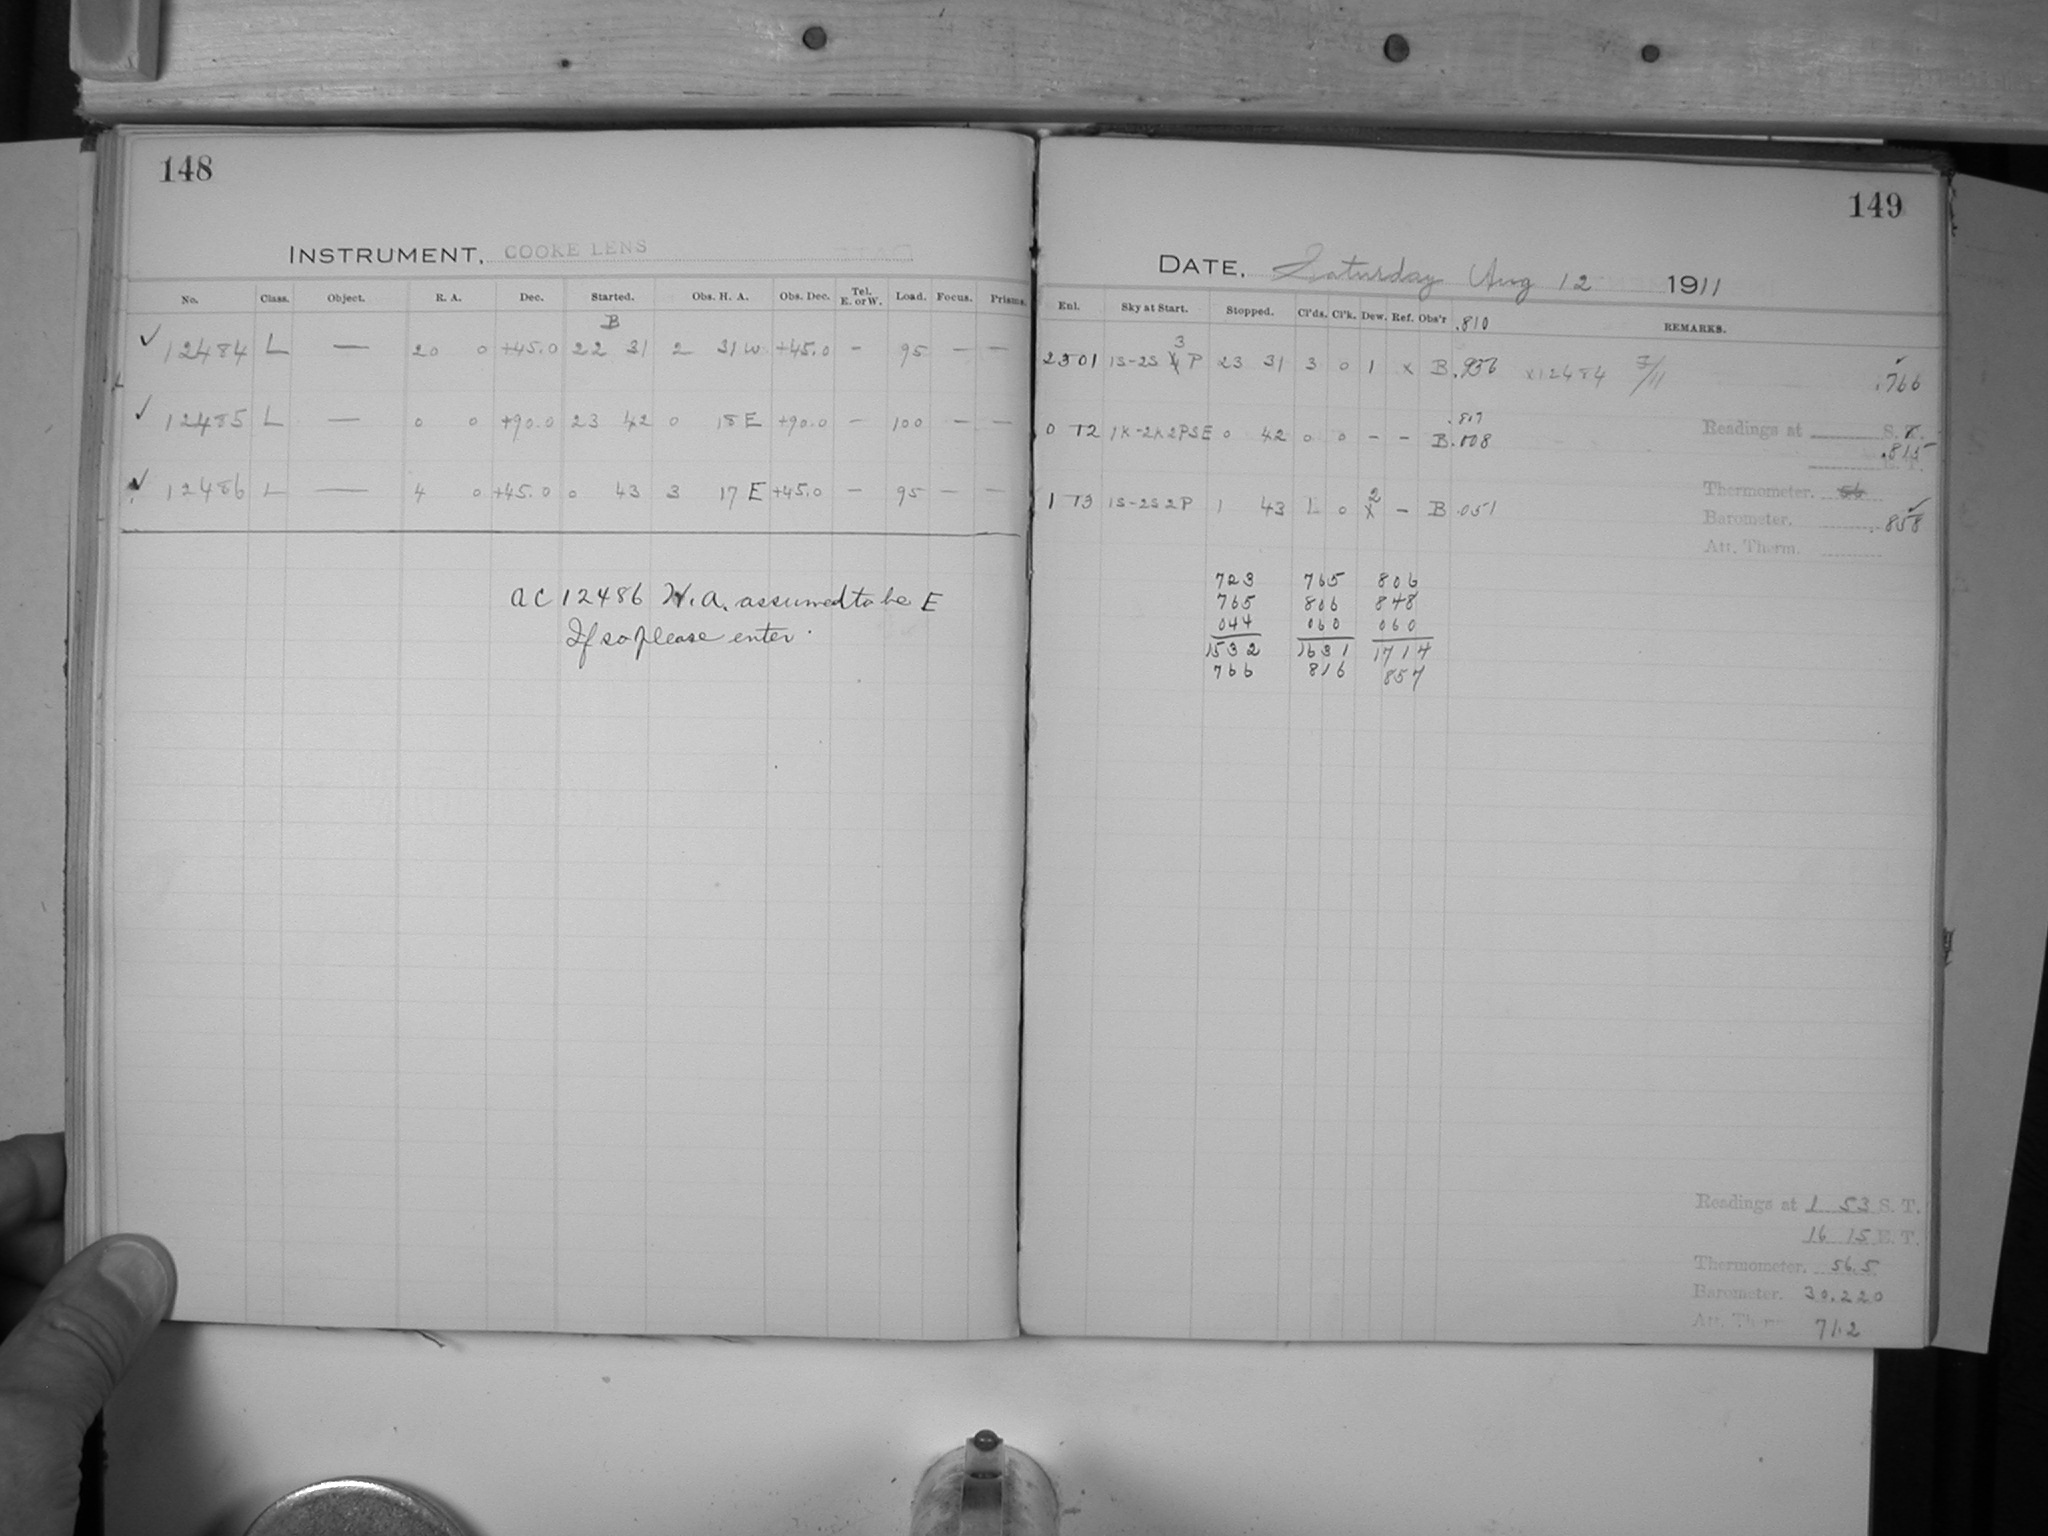 148
INSTRUMENT, COOKE LENS
No. Class. Object. R. A. Dec. Started. Obs. H. A. Obs. Dec. Tel. E. or W. Load. Focus. Prisms.
B
✓ 12484 L — 20 0 +45.0 22 31 2 31 W +45.0 - 95 — —
✓ 12485 L — 0 0 +90.0 23 42 0 18 E +90.0 - 100 — —
✓ 12486 L — 4 0 +45.0 0 43 3 17 E +45.0 - 95 — —
AC 12486 H.A. assumed to be E
If so please enter.
149
DATE, Saturday Aug 12 1911
Enl. Sky at Start. Stopped. Cl'ds. Cl'k. Dew. Ref. Obs'r .810 REMARKS.
3
1S-2S P 23 31 3 0 1 x B x12484 .766
.807
0 T2 1K-2K2PSE 0 42 0 0 - - B
Readings at S. T.
.815
2
1 T3 1S-2S 2P 1 43 L 0 - B .051
Thermometer.
Barometer. .858
Att. Therm.
723 765 806
765 806 848
044 060 060
1532 1631 1714
766 816 857
Readings at 1 53 S. T.
16 15 E. T.
Thermometer. 56.5
Barometer. 30.220
Att. Therm 71.2